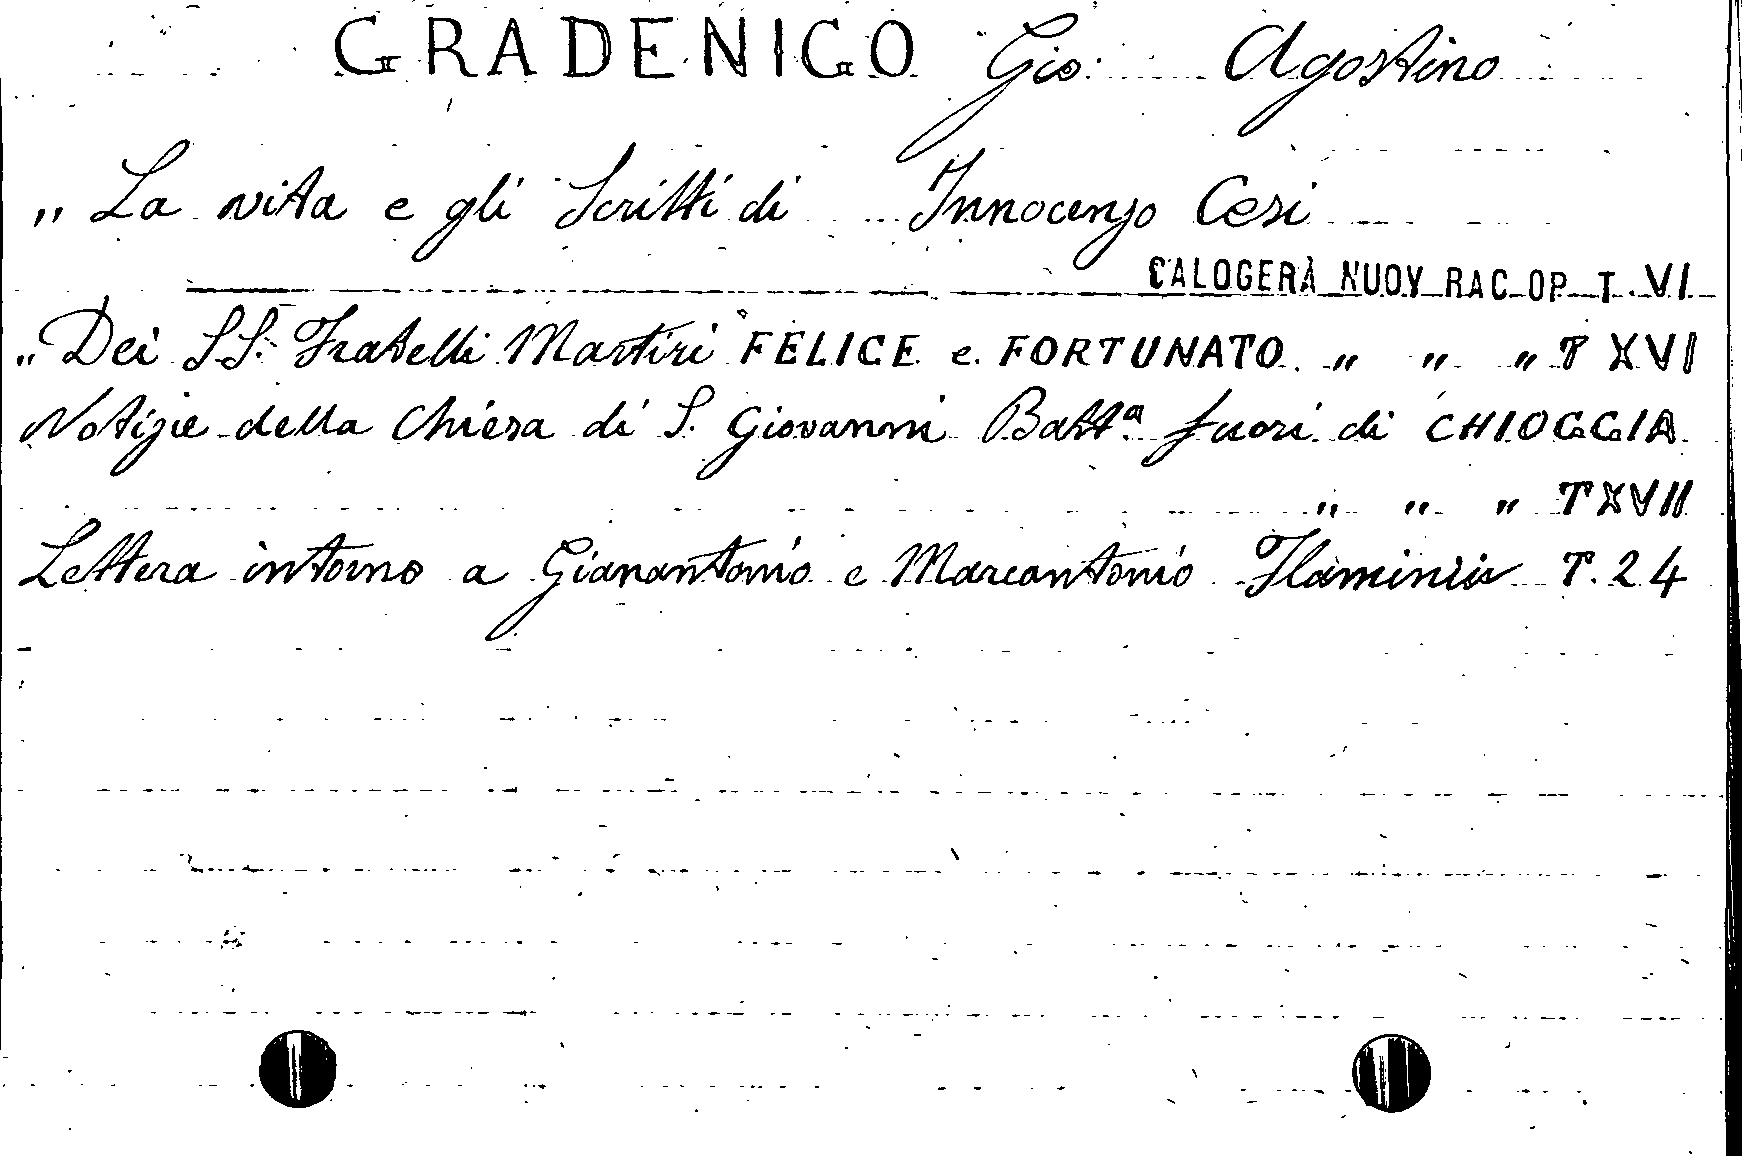 GRADENIGO Gio: Agostino
„ La vita e gli Scritti di Innocenzo Cesi
CALOGERÀ NUOV RAC OP T. VI
„ Dei SS. Fratelli Martiri FELICE e FORTUNATO „ „ „ T XVI
Notizie della Chiesa di S. Giovanni Battª fuori di CHIOGGIA
„ „ „ T XVII
Lettera intorno a Gianantonio e Marcantonio Flaminii T. 24